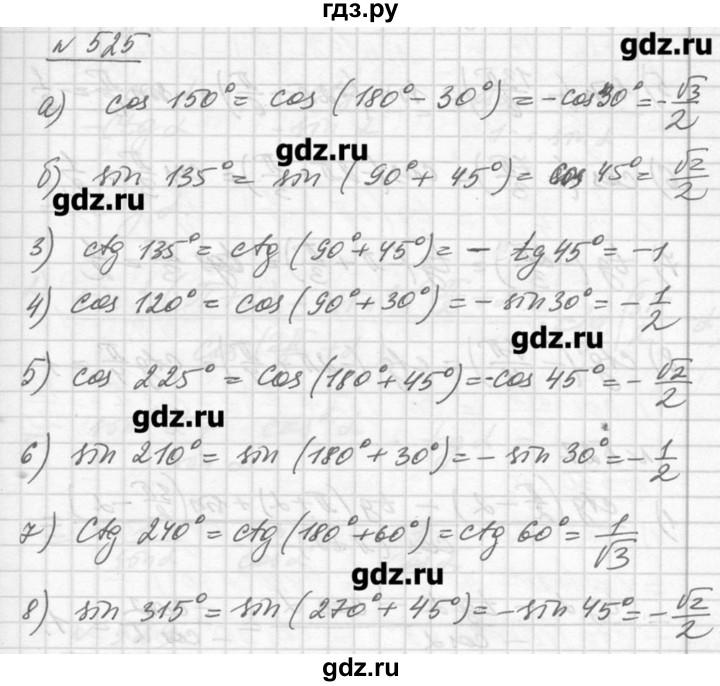 гдз.ру
№ 525
gdz.ru
а) cos 150° = cos (180° - 30°) = - cos 30° = - √3/2
gdz.ru
б) sin 135° = sin (90° + 45°) = cos 45° = √2/2
gdz.ru
3) ctg 135° = ctg (90° + 45°) = - tg 45° = -1
4) cos 120° = cos (90° + 30°) = - sin 30° = - 1/2
gdz.ru
5) cos 225° = cos (180° + 45°) = - cos 45° = - √2/2
gdz.ru
6) sin 210° = sin (180° + 30°) = - sin 30° = - 1/2
7) ctg 240° = ctg (180° + 60°) = ctg 60° = 1/√3
gdz.ru
8) sin 315° = sin (270° + 45°) = - sin 45° = - √2/2
gdz.ru